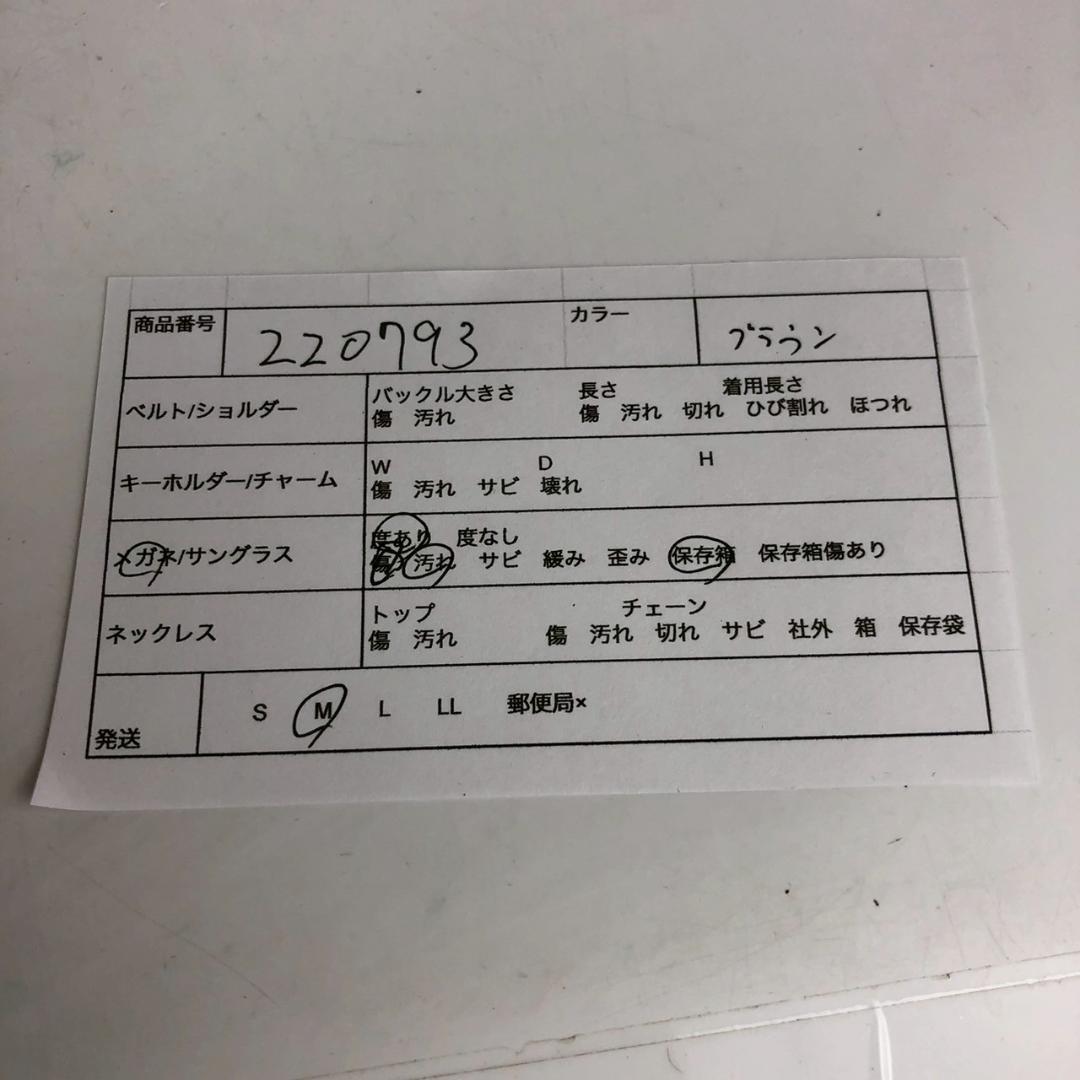 商品番号 220793 カラー ブラウン
ベルト/ショルダー バックル大きさ 長さ 着用長さ
傷 汚れ 傷 汚れ 切れ ひび割れ ほつれ
キーホルダー/チャーム W D H
傷 汚れ サビ 壊れ
メガネ/サングラス 度あり 度なし
傷 汚れ サビ 緩み 歪み 保存箱 保存箱傷あり
ネックレス トップ チェーン
傷 汚れ 傷 汚れ 切れ サビ 社外 箱 保存袋
発送 S M L LL 郵便局×